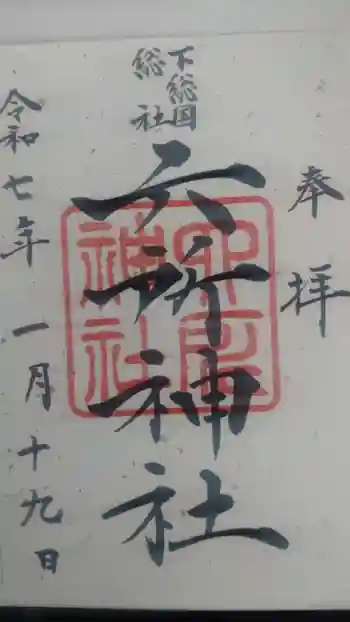 奉拝
下総国
総社
六所神社
六所神社
令和七年一月十九日